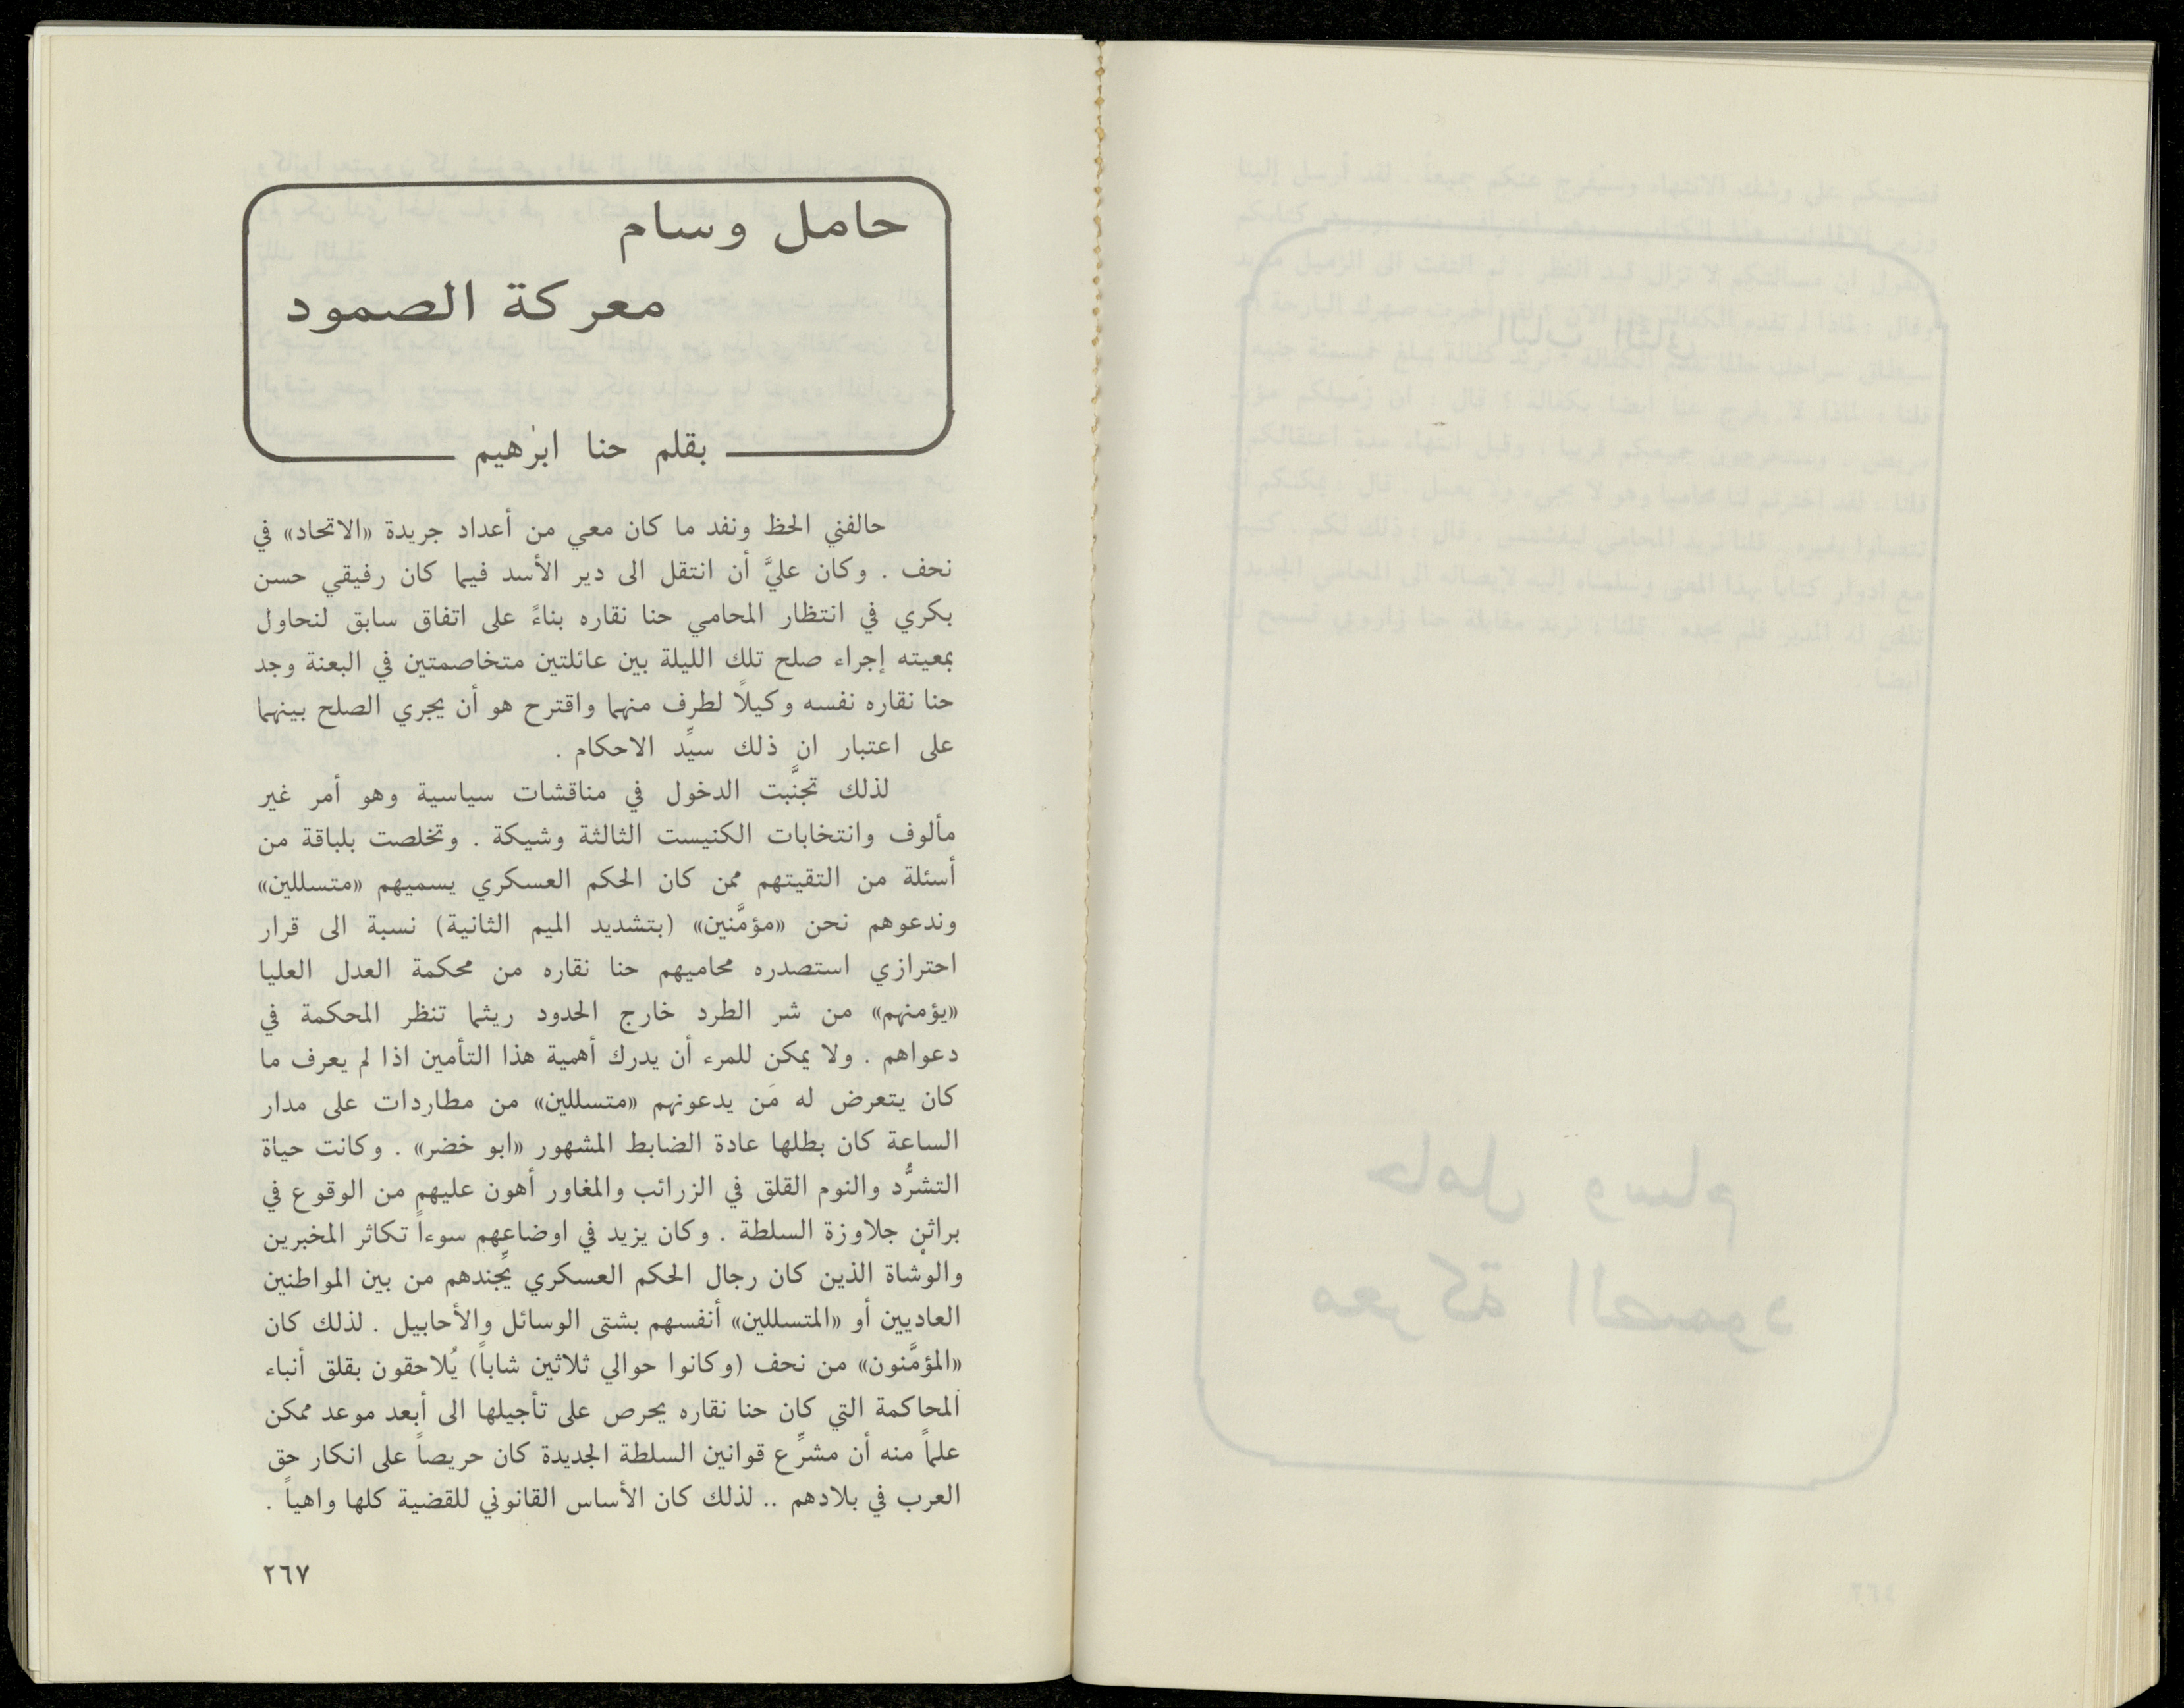 حامل وسام
معركة الصمود
بقلم حنا ابرٰهيم
حالفني الحظ ونفد ما كان معي من أعداد جريدة «الاتحاد» في
نحف . وكان عليَّ أن انتقل الى دير الأسد فيما كان رفيقي حسن
بكري في انتظار المحامي حنا نقاره بناءً على اتفاق سابق لنحاول
بمعيته إجراء صلح تلك الليلة بين عائلتين متخاصمتين في البعنة وجد
حنا نقاره نفسه وكيلاً لطرف منهما واقترح هو أن يجري الصلح بينهما
على اعتبار ان ذلك سيِّد الاحكام .
لذلك تجنَّبت الدخول في مناقشات سياسية وهو أمر غير
مألوف وانتخابات الكنيست الثالثة وشيكة . وتخلصت بلباقة من
أسئلة من التقيتهم ممن كان الحكم العسكري يسميهم «متسللين»
وندعوهم نحن «مؤمَّنين» (بتشديد الميم الثانية) نسبة الى قرار
احترازي استصدره محاميهم حنا نقاره من محكمة العدل العليا
«يؤمنهم» من شر الطرد خارج الحدود ريثما تنظر المحكمة في
دعواهم . ولا يمكن للمرء أن يدرك أهمية هذا التأمين اذا لم يعرف ما
كان يتعرض له مَن يدعونهم «متسللين» من مطاردات على مدار
الساعة كان بطلها عادة الضابط المشهور «ابو خضر» . وكانت حياة
التشرُّد والنوم القلق في الزرائب والمغاور أهون عليهم من الوقوع في
براثن جلاوزة السلطة . وكان يزيد في اوضاعهم سوءاً تكاثر المخبرين
والوشاة الذين كان رجال الحكم العسكري يجِّندهم من بين المواطنين
العاديين أو «المتسللين» أنفسهم بشتى الوسائل والأحابيل . لذلك كان
«المؤمَّنون» من نحف (وكانوا حوالي ثلاثين شاباً) يُلاحقون بقلق أنباء
المحاكمة التي كان حنا نقاره يحرص على تأجيلها الى أبعد موعد ممكن
علماً منه أن مشرِّع قوانين السلطة الجديدة كان حريصاً على انكار حق
العرب في بلادهم .. لذلك كان الأساس القانوني للقضية كلها واهياً .
٢٦٧